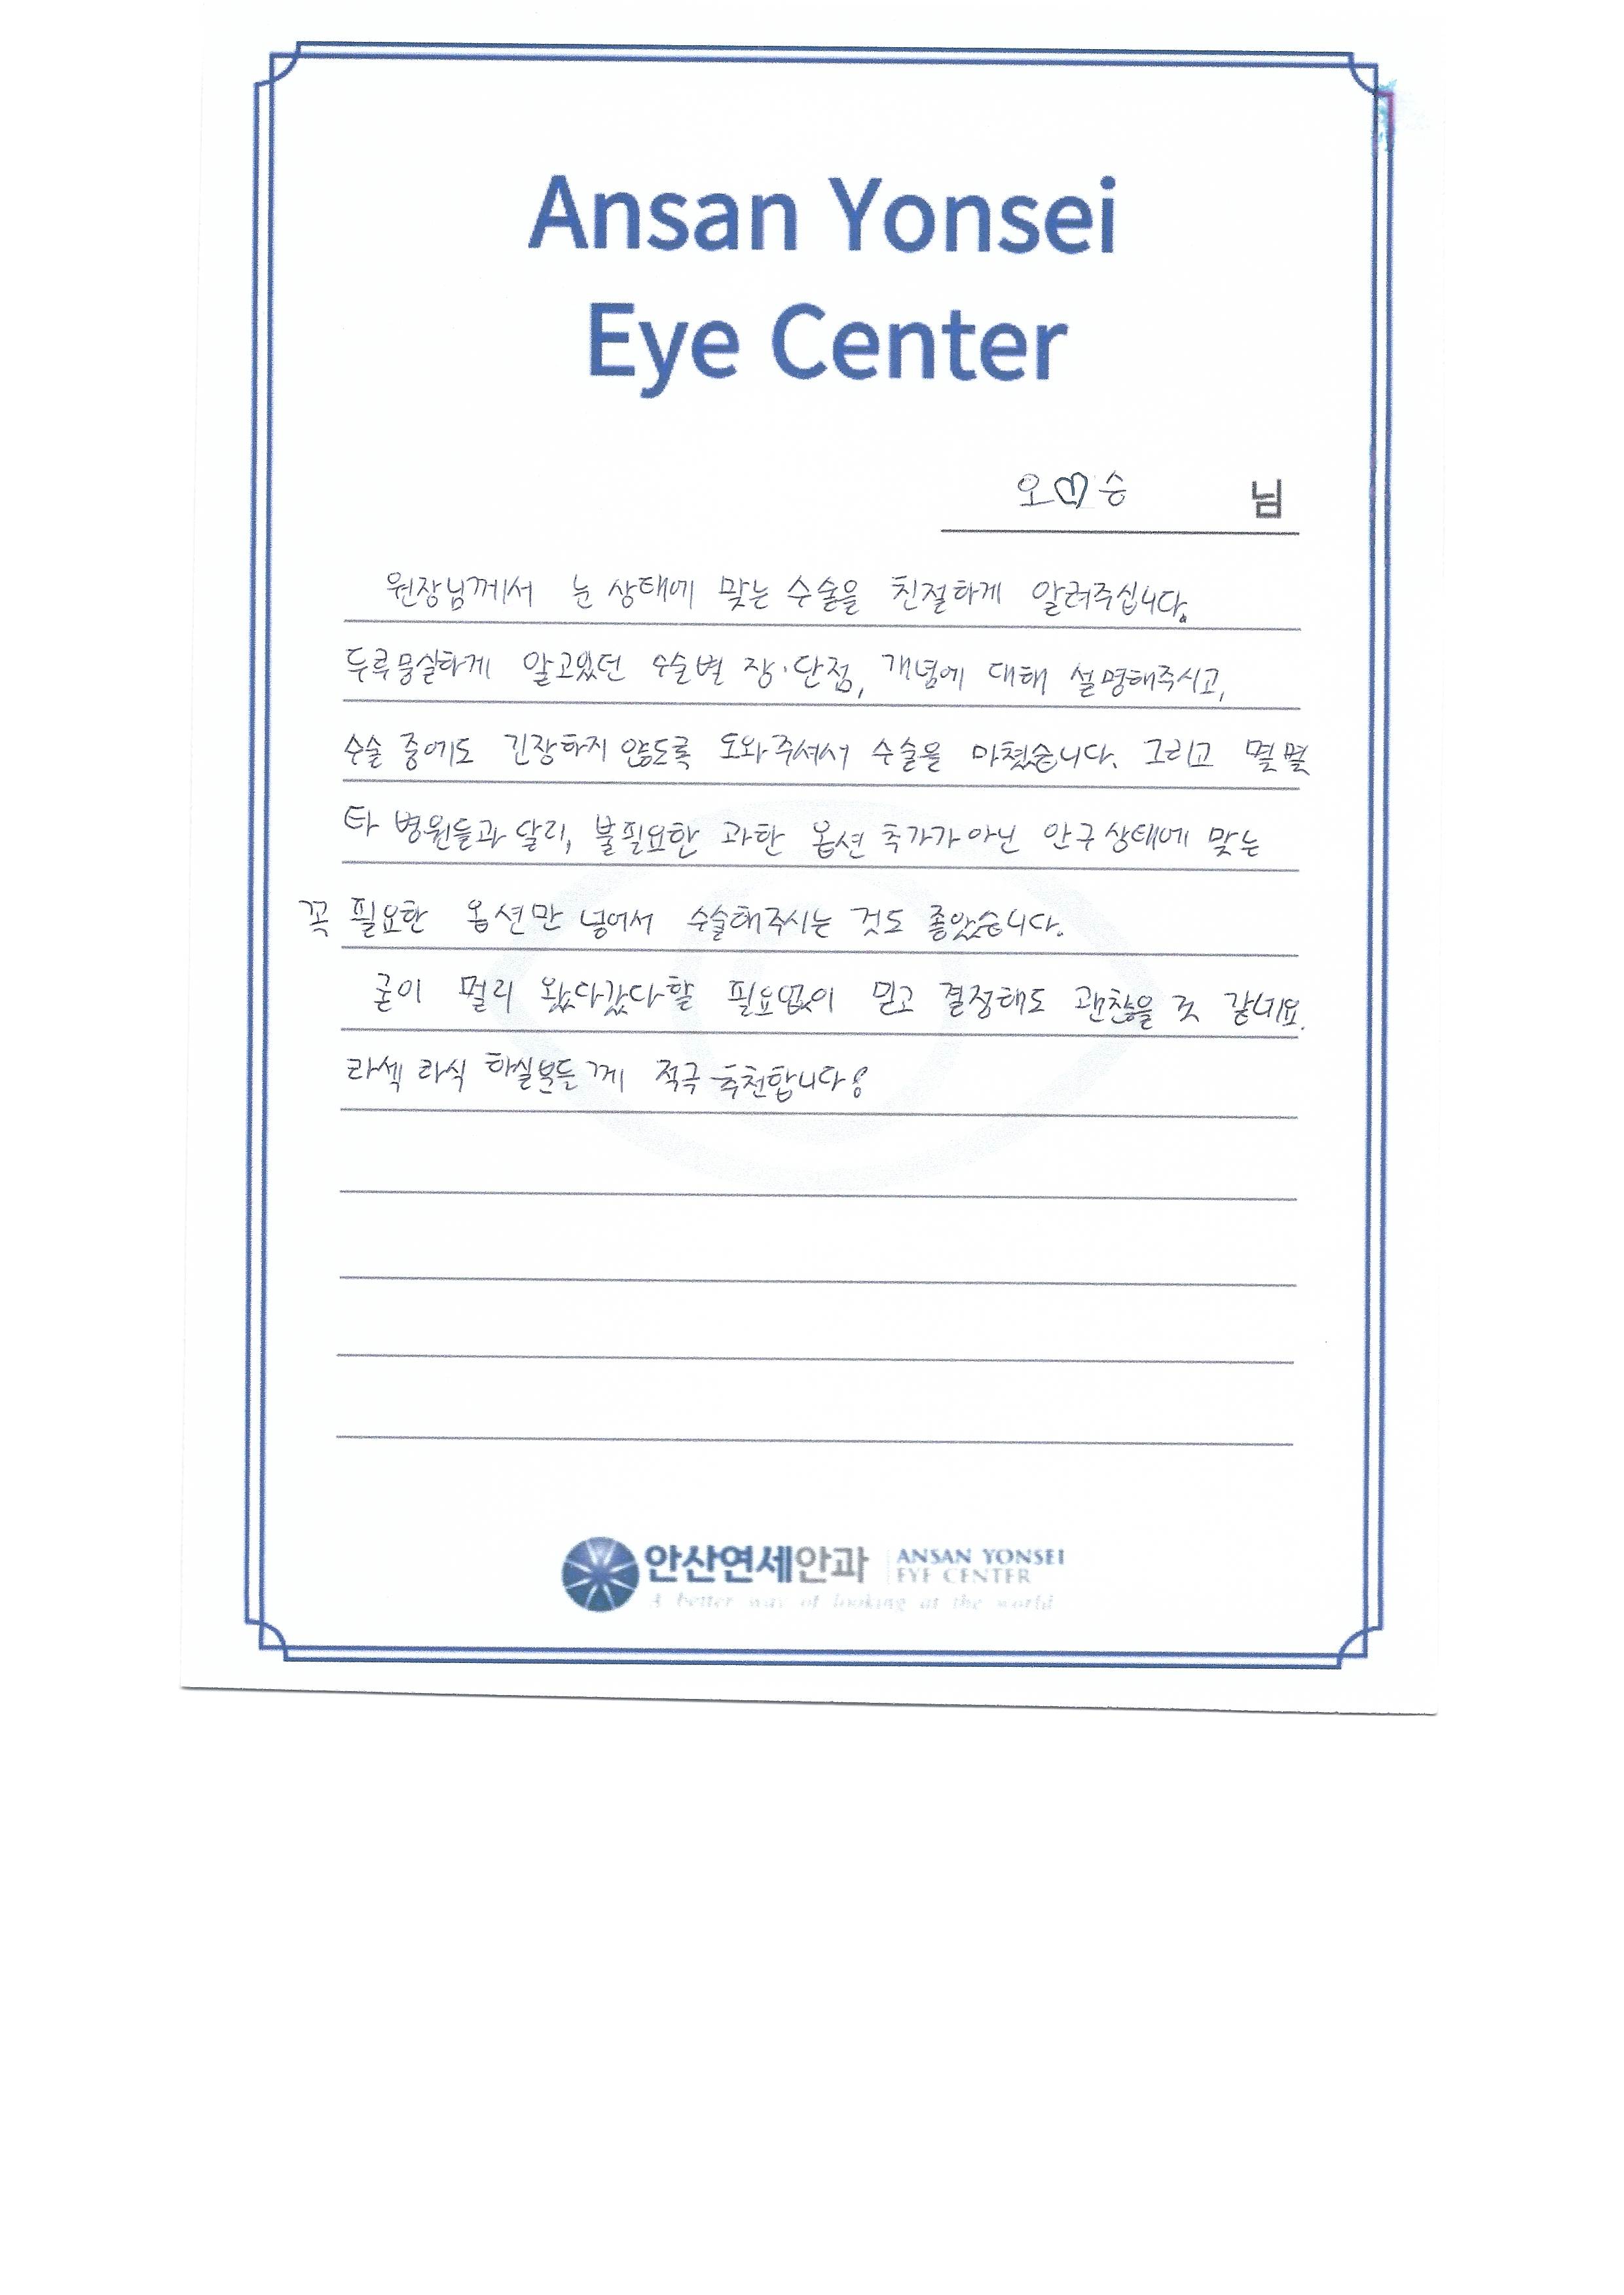 Ansan Yonsei
Eye Center
오♡승 님
원장님께서 눈 상태에 맞는 수술을 친절하게 알려주십니다.
두루뭉실하게 알고있던 수술별 장·단점, 개념에 대해 설명해주시고,
수술 중에도 긴장하지 않도록 도와주셔서 수술을 마쳤습니다. 그리고 몇몇
타 병원들과 달리, 불필요한 과한 옵션 추가가 아닌 안구상태에 맞는
꼭 필요한 옵션만 넣어서 수술해주시는 것도 좋았습니다.
굳이 멀리 왔다갔다할 필요없이 믿고 결정해도 괜찮을 것 같네요.
라섹 라식 하실분들께 적극 추천합니다!
안산연세안과 ANSAN YONSEI
EYE CENTER
A better way of looking at the world